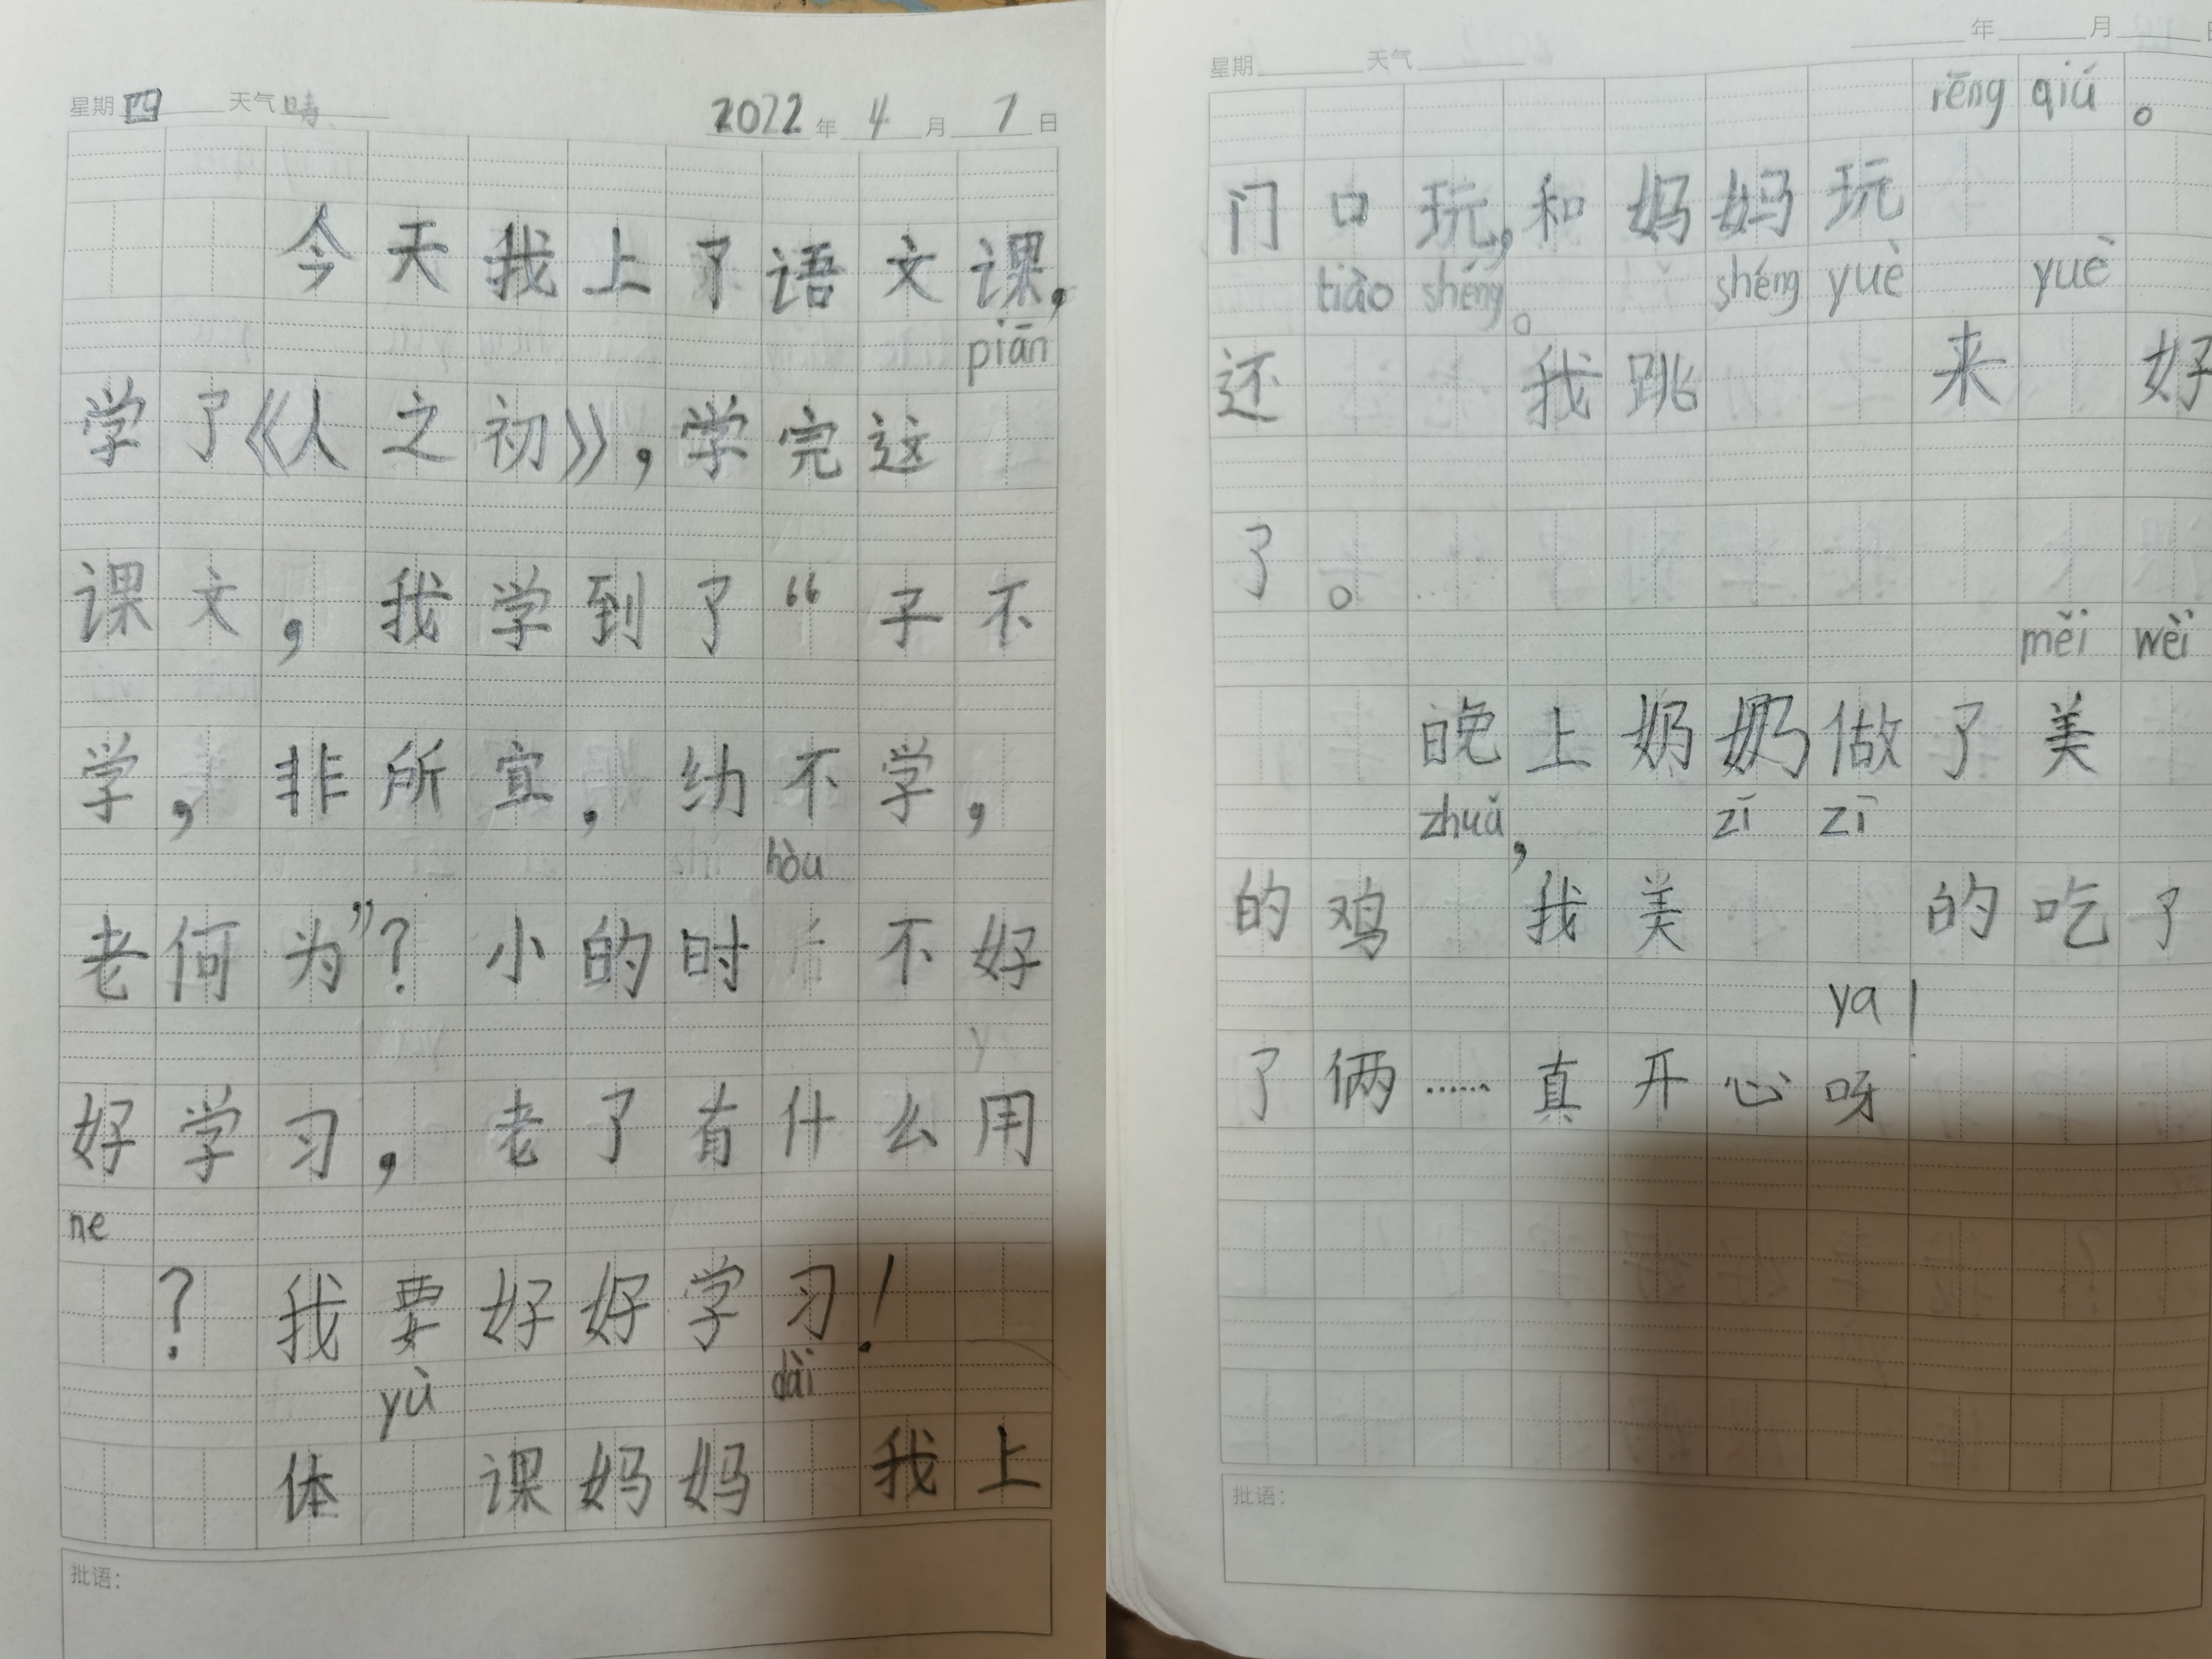 星期 四 天气 晴 2022 年 4 月 7 日
今天我上了语文课,
piān
学了《人之初》,学完这
课文,我学到了“子不
学,非所宜,幼不学,
hòu
老何为”?小的时 不好
好学习,老了有什么用
ne
?我要好好学习!
yù dài
体 课妈妈 我上
批语:
星期 天气 年 月 日
rēng qiú。
门口玩,和妈妈玩
tiào shéng。 shéng yuè yuè
还 我跳 来 好
了。
měi wèi
晚上奶奶做了美
zhuǎ, zī zī
的鸡 我美 的吃了
ya!
了俩……真开心呀
批语: